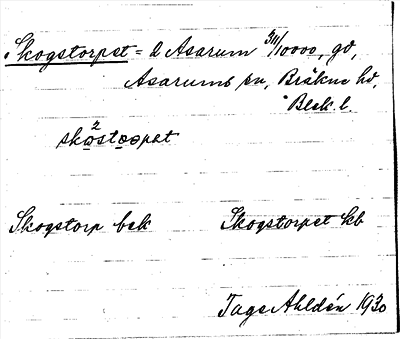 Skogstorpet = 2 Asarum 311/10000, gd,
Asarums sn, Bräkne hd,
Blek. l.
2
skostoopat
Skogstorp bsk
Skogstorpet kb
Tage Ahldén 1930